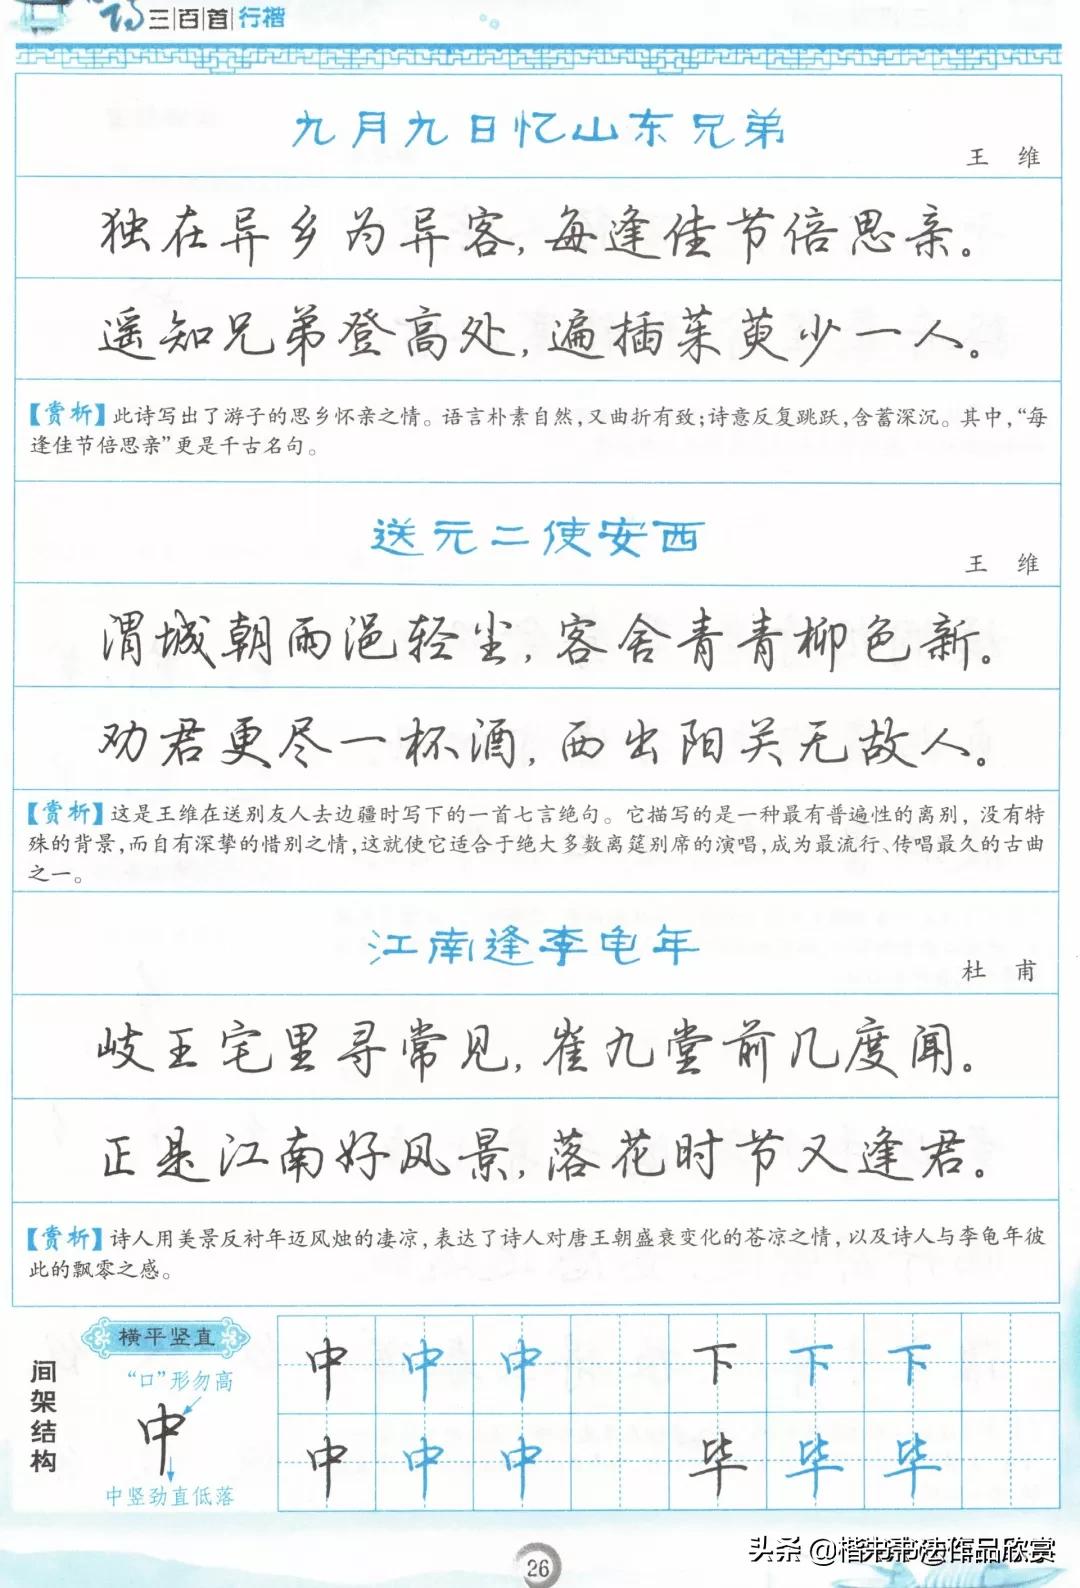 诗三百首 行楷
九月九日忆山东兄弟
王 维
独在异乡为异客,每逢佳节倍思亲。
遥知兄弟登高处,遍插茱萸少一人。
【赏析】此诗写出了游子的思乡怀亲之情。语言朴素自然,又曲折有致;诗意反复跳跃,含蓄深沉。其中,“每
逢佳节倍思亲”更是千古名句。
送元二使安西
王 维
渭城朝雨浥轻尘,客舍青青柳色新。
劝君更尽一杯酒,西出阳关无故人。
【赏析】这是王维在送别友人去边疆时写下的一首七言绝句。它描写的是一种最有普遍性的离别,没有特
殊的背景,而自有深挚的惜别之情,这就使它适合于绝大多数离筵别席的演唱,成为最流行、传唱最久的古曲
之一。
江南逢李龟年
杜 甫
岐王宅里寻常见,崔九堂前几度闻。
正是江南好风景,落花时节又逢君。
【赏析】诗人用美景反衬年迈风烛的凄凉,表达了诗人对唐王朝盛衰变化的苍凉之情,以及诗人与李龟年彼
此的飘零之感。
间架结构
横平竖直
“口”形勿高
中
中竖劲直低落
中 中 中 下 下 下
中 中 中 毕 毕 毕
26
头条 @楷书书法作品欣赏